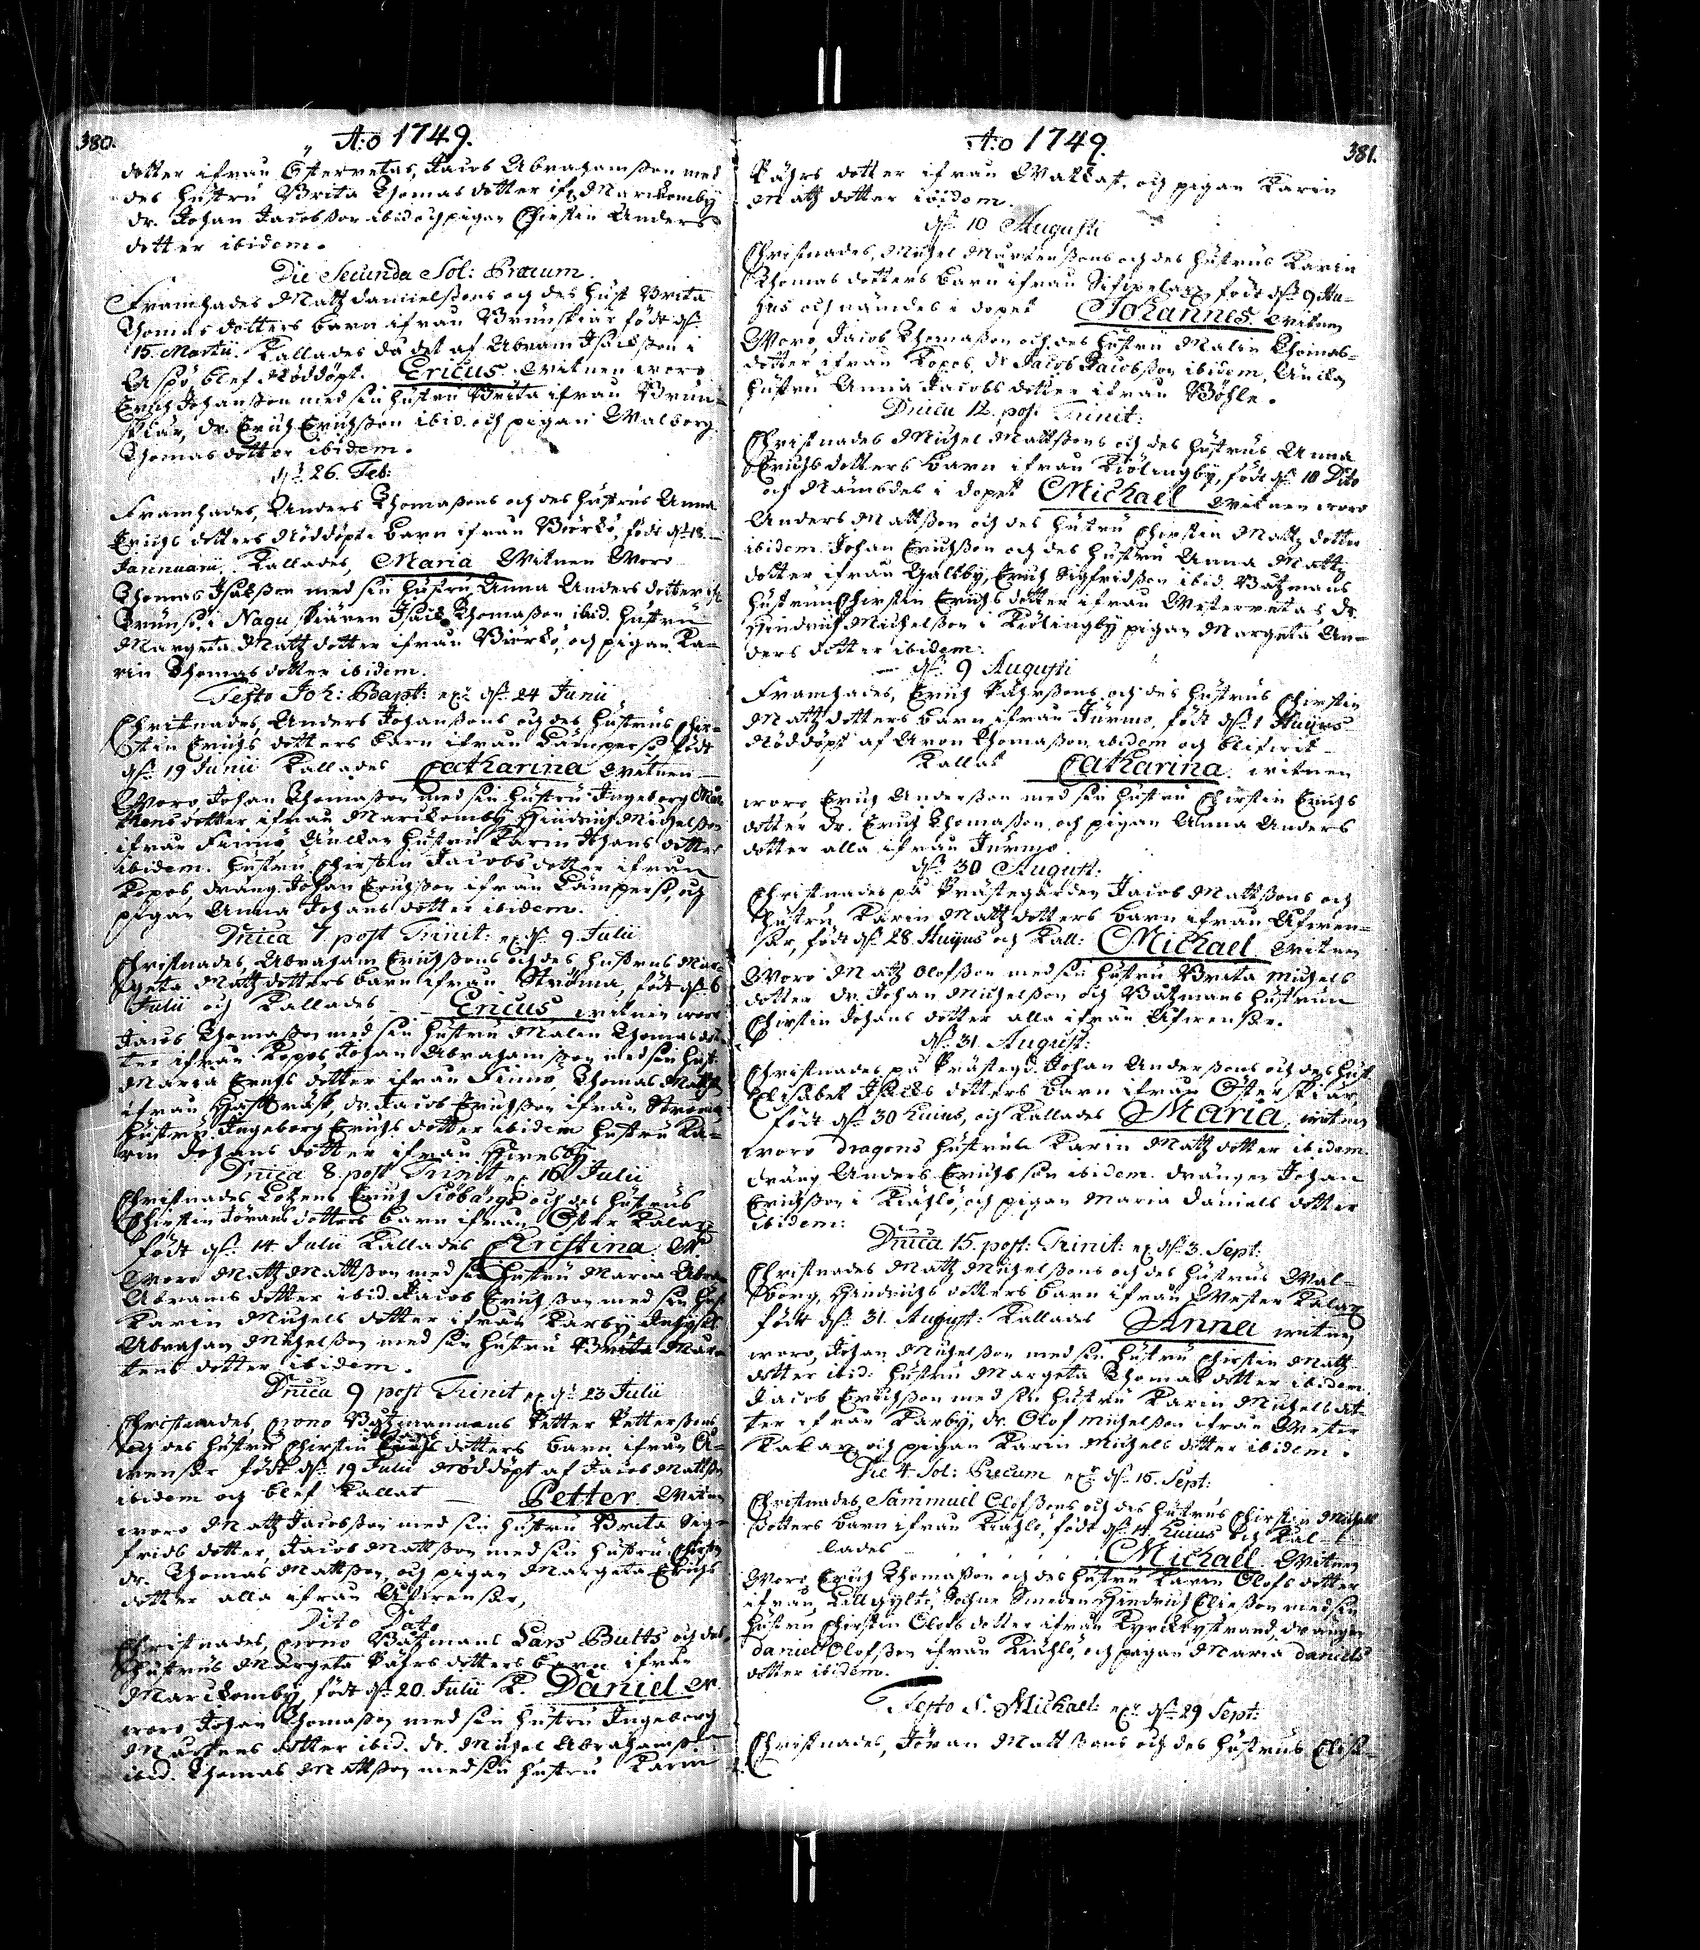 380.
A:o 1749.
dotter ifrån Östervetas, Jacob Abrahamsson med
des hustru Brita Thomas dotter if: Marckomby
dr. Johan Jacobsson ibid och pigan Chirstin Anders
dotter ibidem.
Die Secunda Sol: Precum.
Framhades Matz Danielssons och des hust Brita
Thomas dotters barn ifrån Brunskiär födt d.
15. Martii. Kallades då det af Abram Isacksson i
blef Nöddöpt. Ericus Witnen woro
Erich Johansson med sin hustru Brita ifrån Brun-
skiär, dr. Erich Erichsson ibid. och pigan Walborg
Thomas dotter ibidem.
d. 26. Feb:
Framhades, Anders Thomassons och des hustrus Anna
Erichs dotters Nöddöpte barn ifrån Biörkö, födt d. 18.
Jannuarii. Kallades, Maria Witnen Woro
Thomas Isaksson med sin hustru Anna Anders dotter if:
i Nagu skiären Isaik Thomasson ibid. hustru
Margeta Matz dotter ifrån Biörkö, och pigan Ka-
rin Thomas dotter ibidem.
Festo Joh: Bapt: d. 24 Junii
Christnades, Anders Johanssons och des hustrus Chir-
stin Erichs dotters barn ifrån Kämpersö födt
d. 19 Junii Kallades Catharina Witnen
Woro Johan Thomasson med sin hustru Ingeborg Mår-
tens dotter ifrån Marckomby Hindrich Michelsson
ifrån Finnö hustru Karin Johans dotter
ibidem. hustru Chirstin Jacobs dotter ifrån
Kopos, dräng Johan Erichsson ifrån Kämpersö, och
pigan Anna Johans dotter ibidem.
Dnica 7 post Trinit: d. 9. Julii
Christnades, Abraham Erichssons och des hustrus Mar-
geta Matz dotters barn ifrån Ströma, födt d. 6
Julii och Kallades Ericus witnen woro
Jacob Thomasson med sin hustru Malin Thomas dot-
ter ifrån Kopos Johan Abrahamsson med sin hust:
Maria Erichs dotter ifrån Finnö, Thomas Matsson
ifrån dr. Jacob Erichsson ifrån Ströma
hustru Ingeborg Erichs dotter ibidem hustru Ka-
rin Johans dotter ifrån
Dnica 8. post Trinit 16 Julii
Christnades Erich och des hustrus
Chirstin Jörans dotters barn ifrån Öster Kalax
födt d. 14. Julii Kallades Christina. W.
Woro Matz Mattsson med sin hustru Maria
Abrams dotter ibid. Jacob Erichsson med sin hust
Karin Michels dotter ifrån Karby
Abraham Michelsson med sin hustru Brita Mår-
tens dotter ibidem.
Dnica 9 post Trinit d. 23 Julii
Christnades Båtzmannens Petter Petterssons
och des hustru Chirstin Johans dotters barn ifrån
födt d. 19 Julii nöddöpt af Jacob Mattsson
ibidem och blef kallat Petter Witnen
woro Matz Jacobsson med sin hustru Brita Sig-
frids dotter, Jacob Mattsson med sin hustru Chirstin
dr. Thomas Mattsson, och pigan Margeta Erichs
dotter alla ifrån
Dito Dato
Christnades, Båtzmans Lars Butts och des
hustrus Margeta Påhrs dotters barn ifrån
Marckomby, födt d. 20. Julii K. Daniel W.
woro Johan Thomasson med sin hustru Ingeborg
Mårtens dotter ibid. dr. Michel Abrahamsson
ibid. Thomas Mattsson med sin hustru Karin
A:o 1749.
381.
Påhrs dotter ifrån Wallax, och pigan Karin
Matz dotter ibidem.
d. 10 Augusti
Christnades, Michel Mårtenssons och des hustrus Karin
Thomas dotters barn ifrån födt d. 9 Hu-
jus och nämdes i dopet Johannes. Witnen
Woro Jacob Thomasson och des hustru Malin Thomas-
dotter ifrån Kopos, dr Jacob Jacobsson ibidem,
hustru Anna Jacobs dotter ifrån Böhle.
Dnica 12. post Trinit:
Christnades Michel Mattssons och des hustrus Anna
Erichs dotters barn ifrån Kiölingby, födt d. 10 Dito
och Nämdes i dopet Michael Witnen woro
Anders Mattsson och des hustru Chirstin Matz dotter
ibidem. Johan Erichsson och des hustru Anna Matz
dotter ifrån Gallby, Erich Sigfridsson ibid. Båtzmans
hustrun Chirstin Erichs dotter ifrån Westervetas dr.
Hindrich Michelsson i Kiölingby pigan Margeta An-
ders dotter ibidem.
d. 9 Augusti
Framhades, Erich Påhrssons och des hustrus Chirstin
Matz dotters barn ifrån Jurmo, födt d. 1 Hujus
Nöddöpt af Aron Thomasson ibidem och blifwit
Kallat Catharina. witnen
woro Erich Andersson med sin hustru Chirstin Erichs
dotter dr. Erich Thomasson och pigan Anna Anders
dotter alla ifrån Jurmo.
d. 30 August:
Christnades på Prästegården Jacob Mattssons och
hustru Karin Matz dotters barn ifrån
födt d. 28. Hujus och Kall: Michael Witnen
Woro Matz Olofsson med sin hustru Brita Michels
dotter dr. Johan Michelsson och Båtzmans hustrun
Chirstin Johans dotter alla ifrån
d. 31 August:
Christnades på Prästegd. Johan Anderssons och des hust.
Elisabet Isacks dotters barn ifrån Österskiär
födt d. 30 huius, och Kallades Maria witnen
woro dragons hustrun Karin Matz dotter ibidem.
dräng Anders Erichsson ibidem. drängen Johan
Erichsson i Kiählö, och pigan Maria Daniels dotter
ibidem:
Dnica 15. post: Trinit: d. 3. Sept:
Christnades Matz Michelssons och des hustrus Wal-
borg, Hindrichs dotters barn ifrån Wester Kalax
födt d. 31. August: Kallades Anna witnen
woro, Johan Michelsson med sin hustru Chirstin Matz
dotter ibid: hustru Margeta Thomas dotter ibidem.
Jacob Erichsson med sin hustru Karin Michels dot-
ter ifrån Karby, dr. Olof Michelsson ifrån Wester
Kalax, och pigan Karin Michels dotter ibidem.
Die 4 Sol: Precum d. 15. Sept:
Christnades Sammuel Olofssons och des hustrus Chirstin Michels
dotters barn ifrån Kiählö, födt d. 14. huius och Kal-
lades Michael. Witnen
Woro Erich Thomasson och des hustru Karin Olofs dotter
ifrån Smeden Hindrich Eliesson med sin
hustru Chirstin Olofs dotter ifrån Kyrckostrand, drängen
Daniel Olofsson ifrån Kiählö, och pigan Maria Daniels
dotter ibidem.
Festo S. Michael: d. 29 Sept:
Christnades, Jöran Mattssons och des hustrus Elisa-